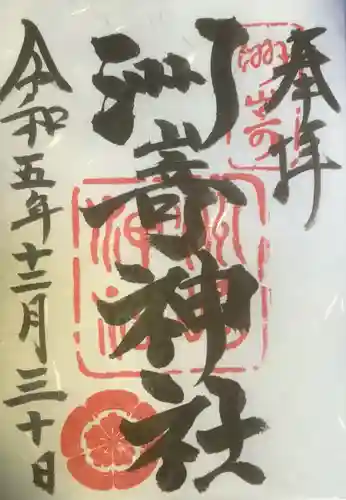 奉拝
洲嵜神社
令和五年十二月三十日